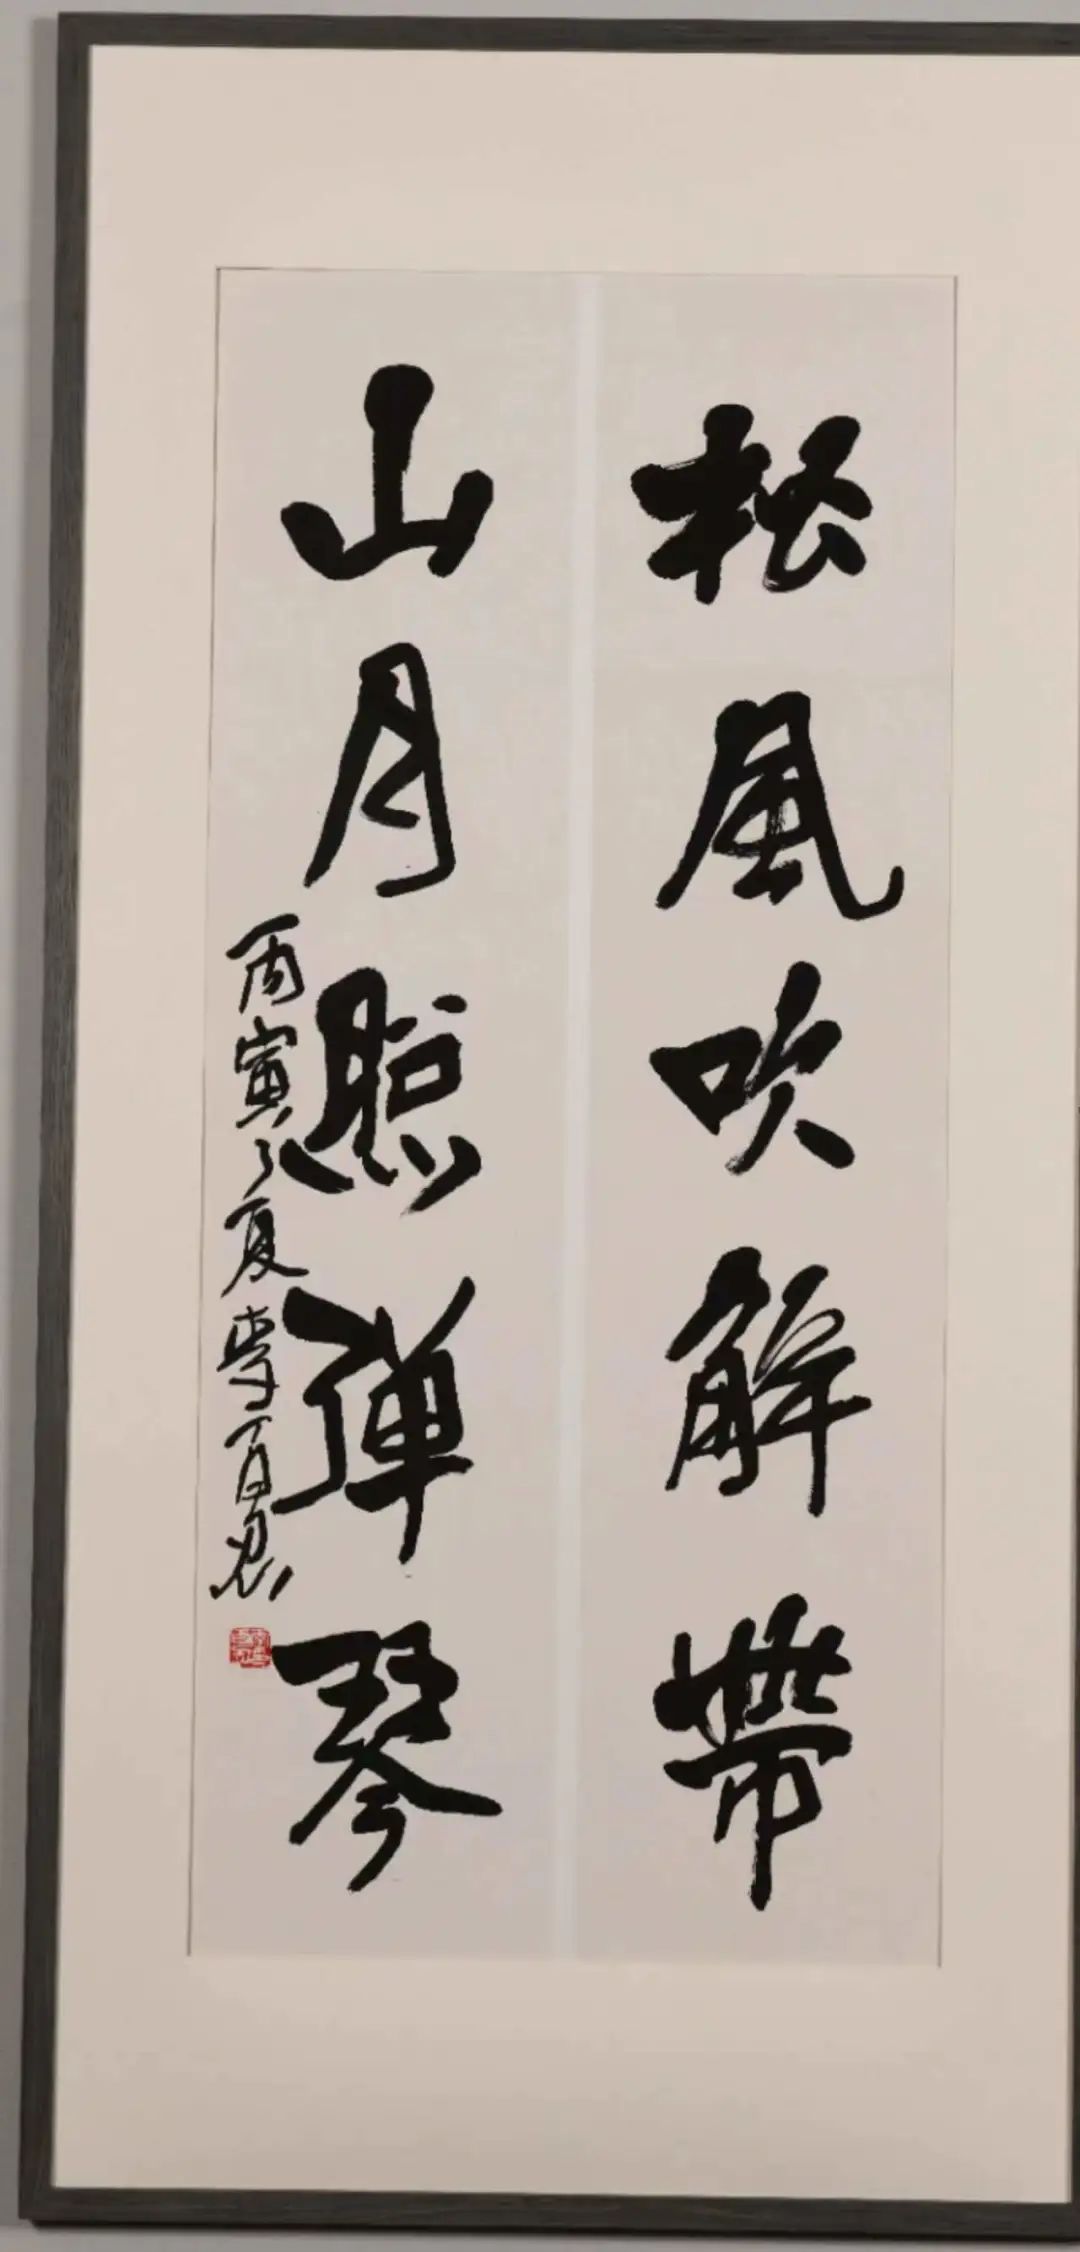 松風吹解帶
山月照彈琴
丙寅之夏李百忍